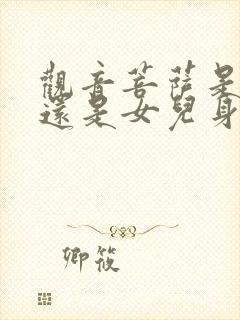 觀音菩薩是
還是女兒身
卿筱